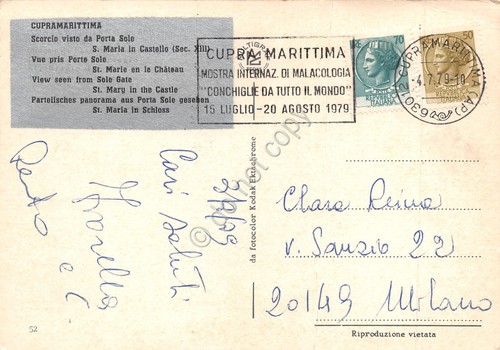 CUPRAMARITTIMA
Scorcio visto da Porta Sole
S. Maria in Castello (Sec. XIII)
Vue pris Porte Sole
St. Marie en le Château
View seen from Sole Gate
St. Mary in the Castle
Parteisches panorama aus Porta Sole gesehen
St. Maria in Schloss
CUPRA MARITTIMA
MOSTRA INTERNAZ. DI MALACOLOGIA
"CONCHIGLIE DA TUTTO IL MONDO"
15 LUGLIO - 20 AGOSTO 1979
70
50
63012 CUPRA MARITTIMA (AP)
-4.7.79-10
Cari saluti
da fotocolor Kodak Ektachrome
Chara Reina
v. Sanzio 22
20149 Milano
52
Riproduzione vietata